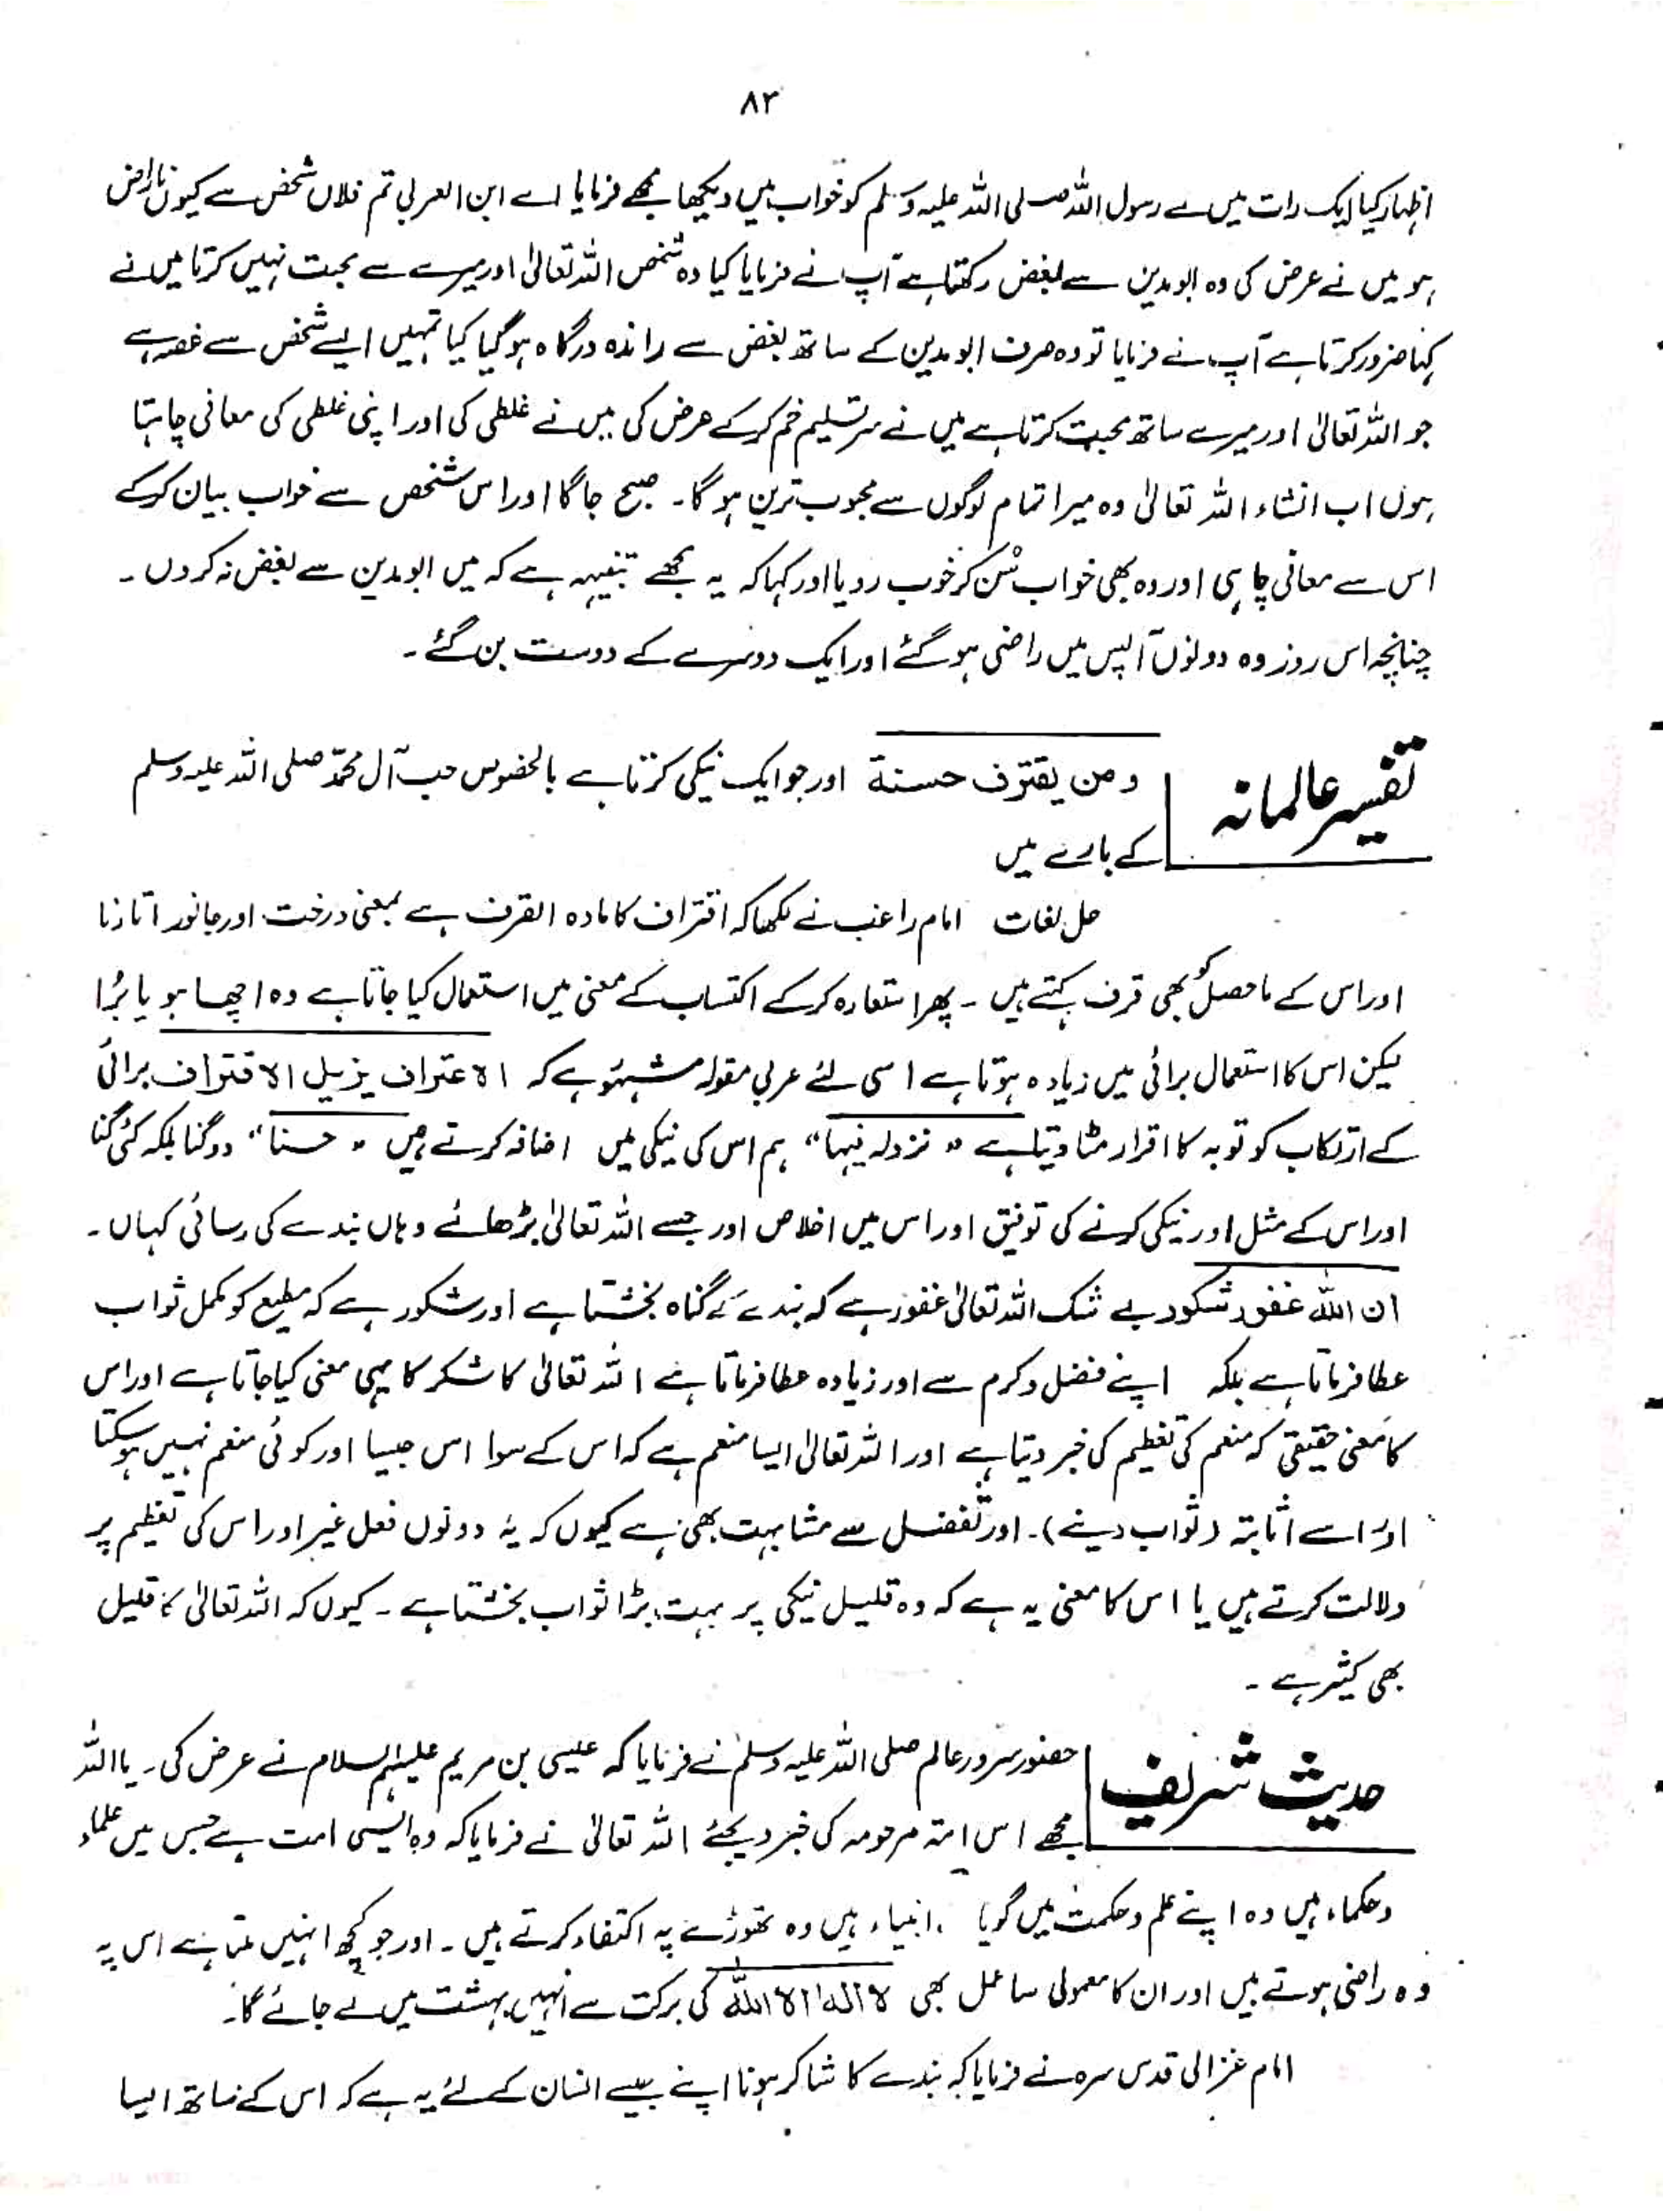 ۸۲
اظہار کیا ایک رات میں نے رسول اللہ صلی اللہ علیہ وسلم کو خواب میں دیکھا مجھے فرمایا اے ابن العربی تم فلاں شخص سے کیوں ناراض
ہو میں نے عرض کی وہ ابو مدین سے بغض رکھتا ہے آپ نے فرمایا کیا وہ شخص اللہ تعالیٰ اور میرے سے محبت نہیں کرتا میں نے
کہا ضرور کرتا ہے آپ نے فرمایا تو وہ صرف ابو مدین کے ساتھ بغض سے راندہ درگاہ ہو گیا کیا تمہیں ایسے شخص سے غصہ ہے
جو اللہ تعالیٰ اور میرے ساتھ محبت کرتا ہے میں نے سر تسلیم خم کر کے عرض کی میں نے غلطی کی اور اپنی غلطی کی معافی چاہتا
ہوں اب انشاء اللہ تعالیٰ وہ میرا تمام لوگوں سے محبوب ترین ہو گا۔ صبح جاگا اور اس شخص سے خواب بیان کر کے
اس سے معافی چاہی اور وہ بھی خواب سُن کر خوب رویا اور کہا کہ یہ مجھے تنبیہہ ہے کہ میں ابو مدین سے بغض نہ کروں ۔
چنانچہ اس روز وہ دونوں آپس میں راضی ہو گئے اور ایک دوسرے کے دوست بن گئے ۔
تفسیر عالمانہ ومن یقترف حسنة اور جو ایک نیکی کرتا ہے بالخصوص حب آل محمّد صلی اللہ علیہ وسلم
کے بارے میں
حل لغات امام راغب نے لکھا کہ اقتراف کا مادہ القرف ہے بمعنی درخت اور جانور اتارنا
اور اس کے ماحصل کو بھی قرف کہتے ہیں ۔ پھر استعارہ کر کے اکتساب کے معنی میں استعمال کیا جاتا ہے وہ اچھا ہو یا بُرا
لیکن اس کا استعمال برائی میں زیادہ ہوتا ہے اسی لئے عربی مقولہ مشہور ہے کہ الاعتراف یزیل الاقتراف برائی
کے ارتکاب کو توبہ کا اقرار مٹا دیتا ہے " نزدلہ فیہا" ہم اس کی نیکی میں اضافہ کرتے ہیں " حسنا" دوگنا بلکہ کئی گنا
اور اس کے مثل اور نیکی کرنے کی توفیق اور اس میں اخلاص اور جسے اللہ تعالیٰ بڑھائے وہاں بندے کی رسائی کہاں ۔
ان اللہ غفور شکور بے شک اللہ تعالیٰ غفور ہے کہ بندے کے گناہ بخشتا ہے اور شکور ہے کہ مطیع کو مکمل ثواب
عطا فرماتا ہے بلکہ اپنے فضل و کرم سے اور زیادہ عطا فرماتا ہے اللہ تعالیٰ کا شکر کا یہی معنی کیا جاتا ہے اور اس
کا معنی حقیقی کہ منعم کی تعظیم کی خبر دیتا ہے اور اللہ تعالیٰ ایسا منعم ہے کہ اس کے سوا اس جیسا اور کوئی منعم نہیں ہو سکتا
اور اسے اثابتہ (ثواب دینے)۔ اور تفضل سے مشابہت بھی ہے کیوں کہ یہ دونوں فعل غیر اور اس کی تعظیم پر
دلالت کرتے ہیں یا اس کا معنی یہ ہے کہ وہ قلیل نیکی پر بہت بڑا ثواب بخشتا ہے ۔ کیوں کہ اللہ تعالیٰ کا قلیل
بھی کثیر ہے ۔
حدیث شریف حضور سرور عالم صلی اللہ علیہ وسلم نے فرمایا کہ عیسی بن مریم علیہم السلام نے عرض کی ۔ یا اللہ
مجھے اس امتہ مرحومہ کی خبر دیجئے اللہ تعالیٰ نے فرمایا کہ وہ ایسی امت ہے جس میں علماء
وحکماء ہیں وہ اپنے علم وحکمت میں گویا انبیاء ہیں وہ تھوڑے پہ اکتفاء کرتے ہیں ۔ اور جو کچھ انہیں ملتا ہے اس پہ
وہ راضی ہوتے ہیں اور ان کا معمولی سا عمل بھی لا الہ الا اللہ کی برکت سے انہیں بہشت میں لے جائے گا۔
امام غزالی قدس سرہ نے فرمایا کہ بندے کا شاکر ہونا اپنے جیسے انسان کے لئے یہ ہے کہ اس کے ساتھ ایسا